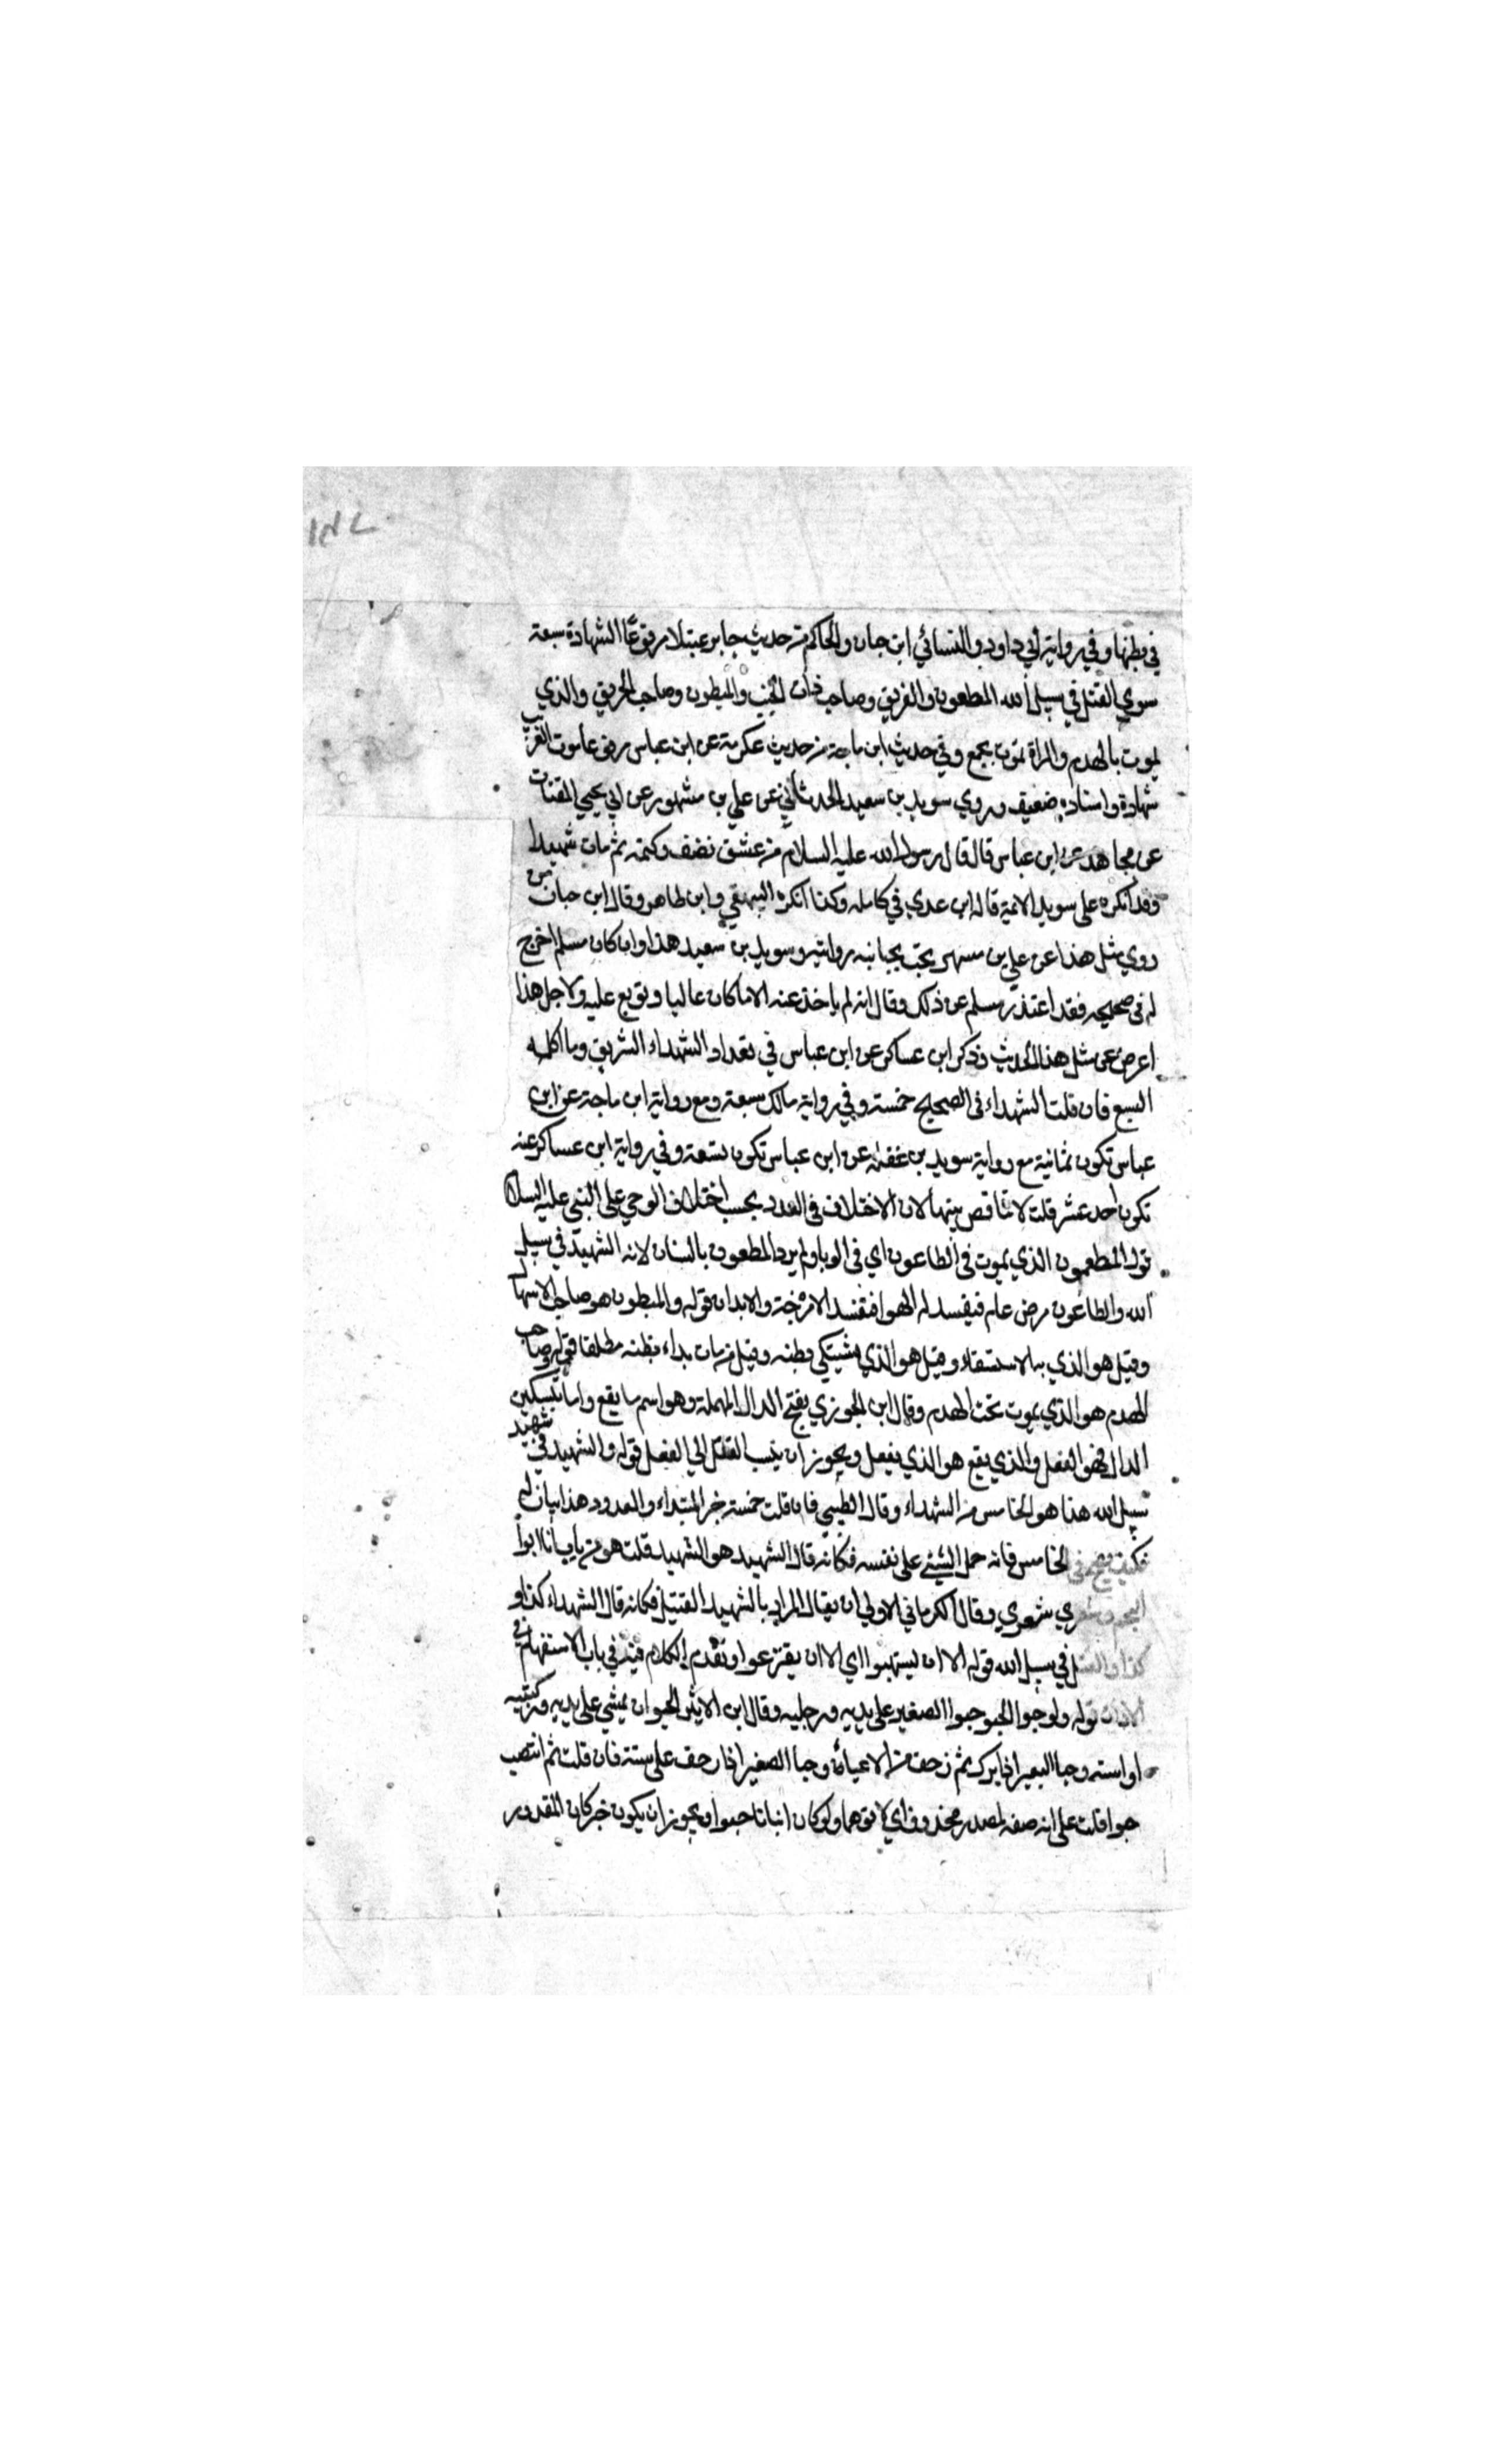 ١٨٧
في بطنها وفي رواية ابي داود والنسائي ابن حبان والحاكم من حديث جابر عتيك مرفوعًا الشهادة سبعة
سوي القتل في سبيل الله المطعون والغريق وصاحب ذات الجنب والمبطون وصاحب الحريق والذي
يموت بالهدم والمراة تموت بجمع وفي حديث ابن ماجة من حديث عكرمة عن ابن عباس موت الغريب
شهادة واسناده ضعيف وروي سويد بن سعيد الحدثاني عن علي بن مشهور عن ابي يحيي القتات
عن مجاهد عن ابن عباس قال قال رسول الله عليه السلام من عشق فعف وكتم ثم مات شهيدا
وقد انكره علي سويد الائمة قاله ابن عدي في كامله وكذا انكره البيهقي وابن طاهر وقال ابن حبان من
روي مثل هذا عن علي بن مسهر يجب مجانبة روايته وسويد بن سعيد هذا وان كان مسلم اخرج
له في صحيحه فقد اعتذر مسلم عن ذلك وقال انه لم ياخذ عنه الا ما كان عاليا وتوبع عليه ولاجل هذا
اعرض عن مثل هذا الحديث وذكر ابن عساكر عن ابن عباس في تعداد الشهداء الشريق وما اكله
السبع فان قلت الشهداء في الصحيح خمسة وفي رواية مالك سبعة ومع رواية ابن ماجة عن ابن
عباس تكون ثمانية مع رواية سويد بن غفلة عن ابن عباس تكون تسعة وفي رواية ابن عساكر عنه
تكون احد عشر قلت لا تناقض بينها لان الاختلاف في العدد بحسب اختلاف الوحي على النبي عليه السلام
قوله المطعون الذي يموت في الطاعون اي في الوبا ولم يرد المطعون بالسنان لانه الشهيد في سبيل
الله والطاعون مرض عام فيفسد له الهوا فتفسد الامزجة والابدان قوله والمبطون هو صاحب الاسهال
وقيل هو الذي به الاستسقاء وقيل هو الذي يشتكي بطنه وقيل من مات بداء بطنه مطلقا قوله وصاحب
الهدم هو الذي يموت تحت الهدم وقال ابن الجوزي بفتح الدال المهملة وهو اسم ما يقع واما تسكين
الدال فهو الفعل والذي يقع هو الذي يفعل ويجوز ان ينسب القتل الي الفعل قوله والشهيد في شهيد
سبيل الله هذا هو الخامس من الشهداء وقال الطيبي فان قلت خمسة خبر المبتداء والمعدود هذا بيان له
فكيف يصح في الخامس فانه حمل الشئ على نفسه فكانه قال الشهيد هو الشهيد قلت هو من باب انا ابوا
النجم وشعري شعري وقال الكرماني الاولي ان يقال المراد بالشهيد القتيل فكانه قال الشهداء كذا و
كذا والقتيل في سبيل الله قوله الا ان يستهموا اي الا ان يقترعوا وتقدم الكلام فيه في باب الاستفهام في
الاذان قوله ولو حبوا الحبو حبوا الصغير على يديه ورجليه وقال ابن الاثير الحبو ان يمشي على يديه وركبتيه
او استه وحبا البعير اذا برك ثم زحف من الاعياء وحبا الصغير اذا زحف على سته فان قلت ثم انتصب
حبوا قلت على انه صفة لمصدر محذوف اي لاتوهما ولو كان اتيانا حبوا ويجوز ان يكون خبر كان المقدور